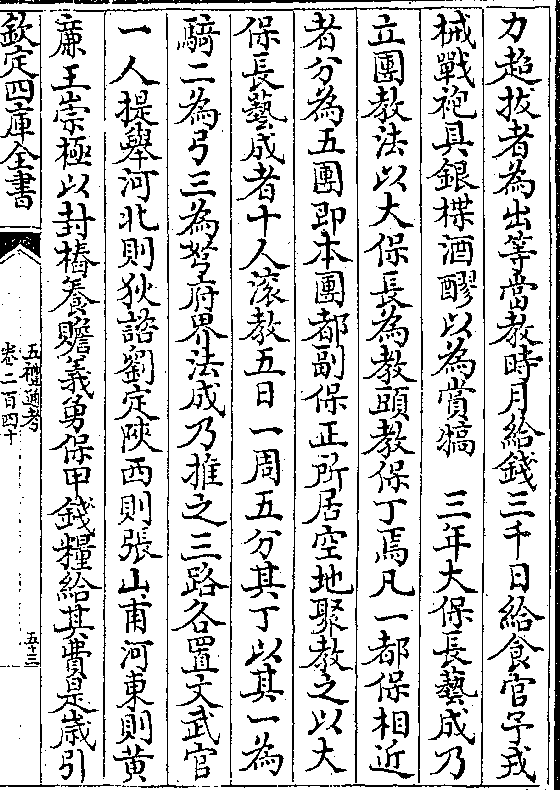 力超拔者為出等當教時月給錢三千日給食官予戎
械戰袍具銀楪酒醪以為賞犒　三年大保長藝成乃
立團教法以大保長為教頭教保丁焉凡一都保相近
者分為五團即本團都副保正所居空地聚教之以大
保長藝成者十人滚教五日一周五分其丁以其一為
騎二為弓三為弩府界法成乃推之三路各置文武官
一人提舉河北則狄諮劉定陝西則張山甫河東則黄
亷王崇極以封樁養贍義勇保甲錢糧給其費是歲引
欽定四庫全書
五禮通考
卷二百四十
五十三